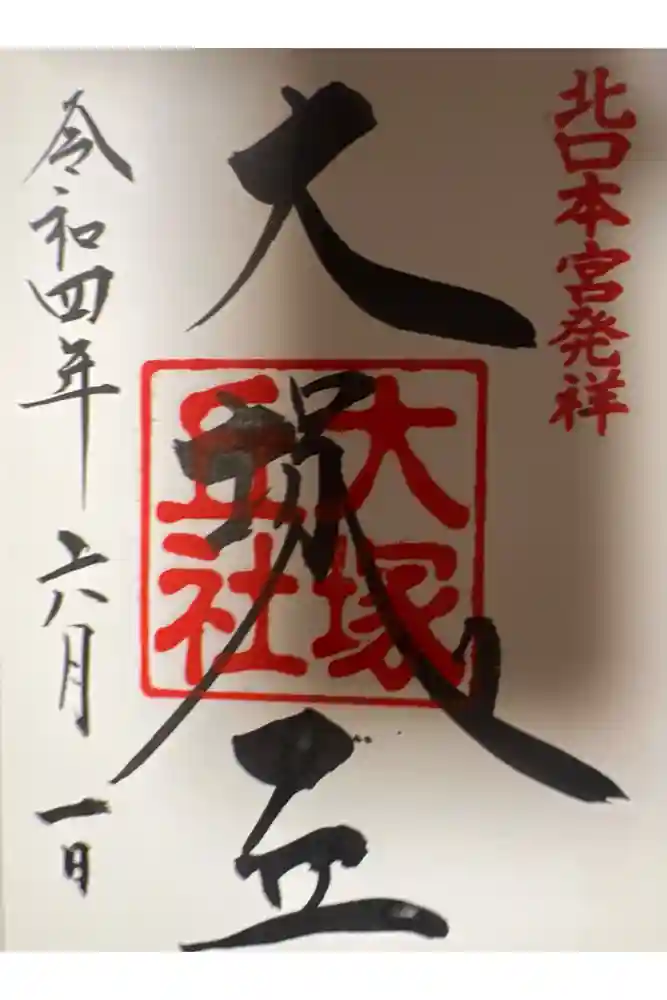 北口本宮発祥
大塚丘
大塚
丘社
令和四年 六月 一日